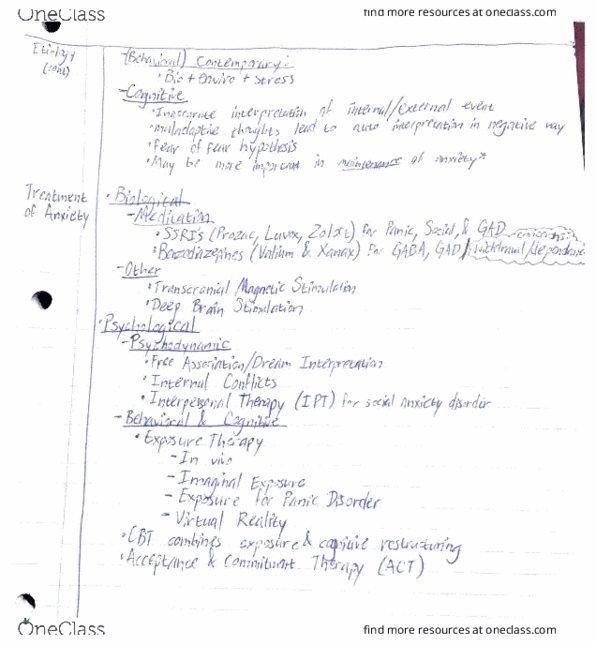 OneClass find more resources at oneclass.com
Etiology -(Behavioral) Contemporary:
(cont) • Bio + enviro + stress
-Cognitive
• Inaccurate interpretation of internal/external event
• maladaptive thoughts lead to auto interpretation in negative way
• Fear of fear hypothesis
• May be more important in maintenance of anxiety*
Treatment • Biological
of Anxiety -Medication
• SSRI's (Prozac, Luvox, Zoloft) for Panic, Social, & GAD
• Benzodiazepines (Valium & Xanax) for GABA, GAD / withdrawal/dependence
-Other
• Transcranial Magnetic Stimulation
• Deep Brain Stimulation
• Psychological
-Psychodynamic
• Free Association/Dream Interpretation
• Internal Conflicts
• Interpersonal Therapy (IPT) for social anxiety disorder
- Behavioral & Cognitive
• Exposure Therapy
- In vivo
- Imaginal Exposure
- Exposure for Panic Disorder
- Virtual Reality
• CBT combines exposure & cognitive restructuring
• Acceptance & Commitment Therapy (ACT)
OneClass find more resources at oneclass.com